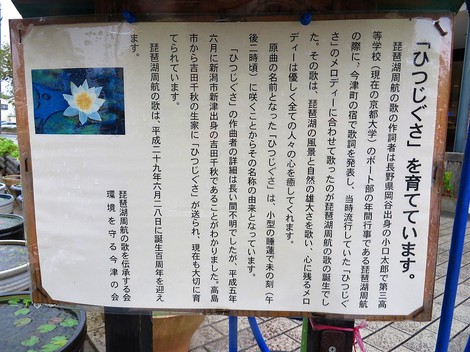 「ひつじぐさ」を育てています。
琵琶湖周航の歌の作詞者は長野県岡谷出身の小口太郎で第三高
等学校(現在の京都大学)のボート部の年間行事である琵琶湖周航
の際に、今津町の宿で歌詞を発表し、当時流行していた「ひつじぐ
さ」のメロディーに合わせて歌ったのが琵琶湖周航の歌の誕生でし
た。その歌は、琵琶湖の風景と自然の雄大さを歌い、心に残るメロ
ディーは優しく全ての人々の心を癒してくれます。
原曲の名前となった「ひつじぐさ」は、小型の睡蓮で未の刻(午
後二時頃)に咲くことからその名称の由来となっています。
「ひつじぐさ」の作曲者の詳細は長い間不明でしたが、平成五年
六月に新潟市新津出身の吉田千秋であることがわかりました。高島
市から吉田千秋の生家に「ひつじぐさ」が送られ、現在も大切に育
てられています。
琵琶湖周航の歌は、平成二十九年六月二八日に誕生百周年を迎え
ます。
琵琶湖周航の歌を伝承する会
環境を守る今津の会